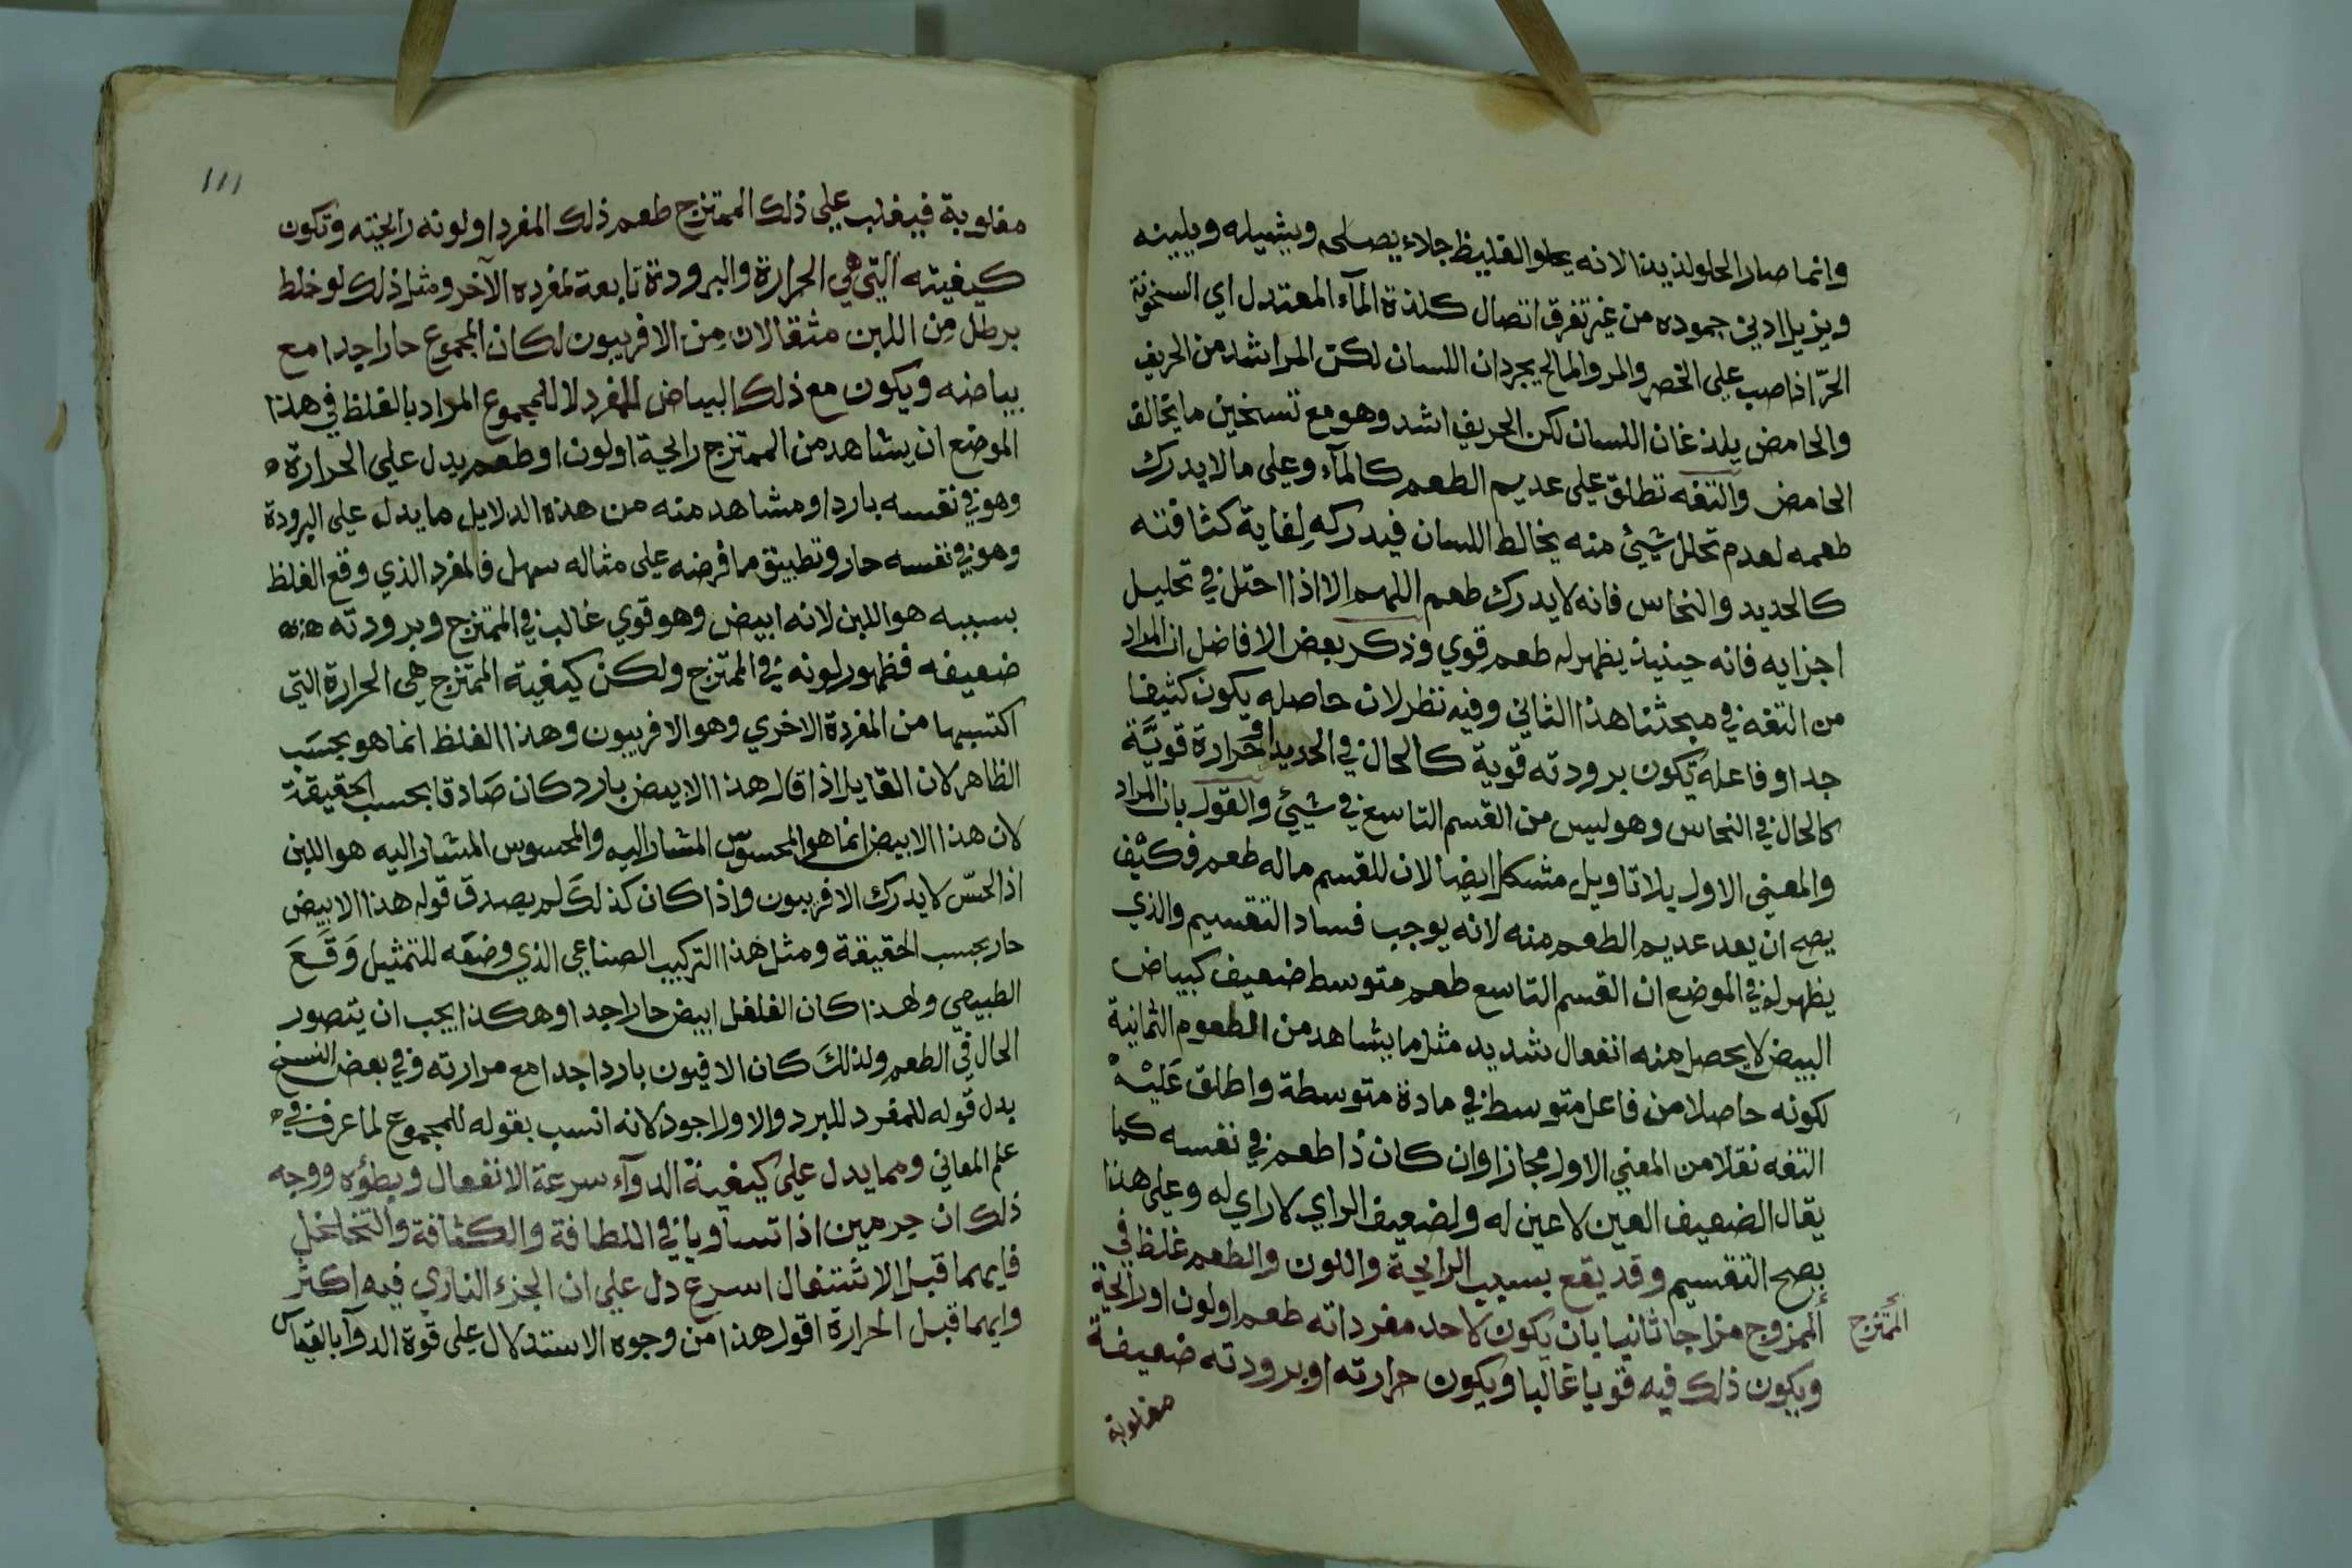 وانما صار الحلو لذيذا لانه يجلو الغليظ جلاء يصلحه ويشيله ويلينه
ويزيل اذي جموده من غير تفرق اتصال كلذة المآء المعتدل اي السخونة
الحرّ اذا صب علي الخصر والمر والمالح يجردان اللسان لكن المر اشد من الحريف
والحامض يلذغان اللسان لكن الحريف اشد وهو مع تسخين ما يخالف
الحامض والتفه تطلق علي عديم الطعم كالمآء وعلي ما لا يدرك
طعمه لعدم تحلل شيئ منه يخالط اللسان فيدركه لغاية كثافته
كالحديد والنحاس فانه لا يدرك طعم اللهم الا اذا احتل في تحليل
اجزايه فانه حينيذ يظهر له طعم قوي وذكر بعض الافاضل ان المراد
من التفه في مبحثنا هذا الثاني وفيه نظر لان حاصله يكون كثيفا
جدا وفاعله تكون برودته قوية كالحال في الحديد او حرارة قويّة
كالحال في النحاس وهو ليس من القسم التاسع في شيئ والقول بان المراد
والمعني الاول بلا تاويل مشكل ايضا لان للقسم ما له طعم فكيف
يصح ان يعد عديم الطعم منه لانه يوجب فساد التقسيم والذي
يظهر لي في الموضع ان القسم التاسع طعم متوسط ضعيف كبياض
البيض لا يحصل منه انفعال شديد مثل ما يشاهد من الطعوم الثمانية
لكونه حاصلا من فاعل متوسط في مادة متوسطة واطلق عَليْهْ
التفه نقلا من المعني الاول مجازا وان كان ذا طعم في نفسه كما
يقال الضعيف العين لا عين له ولضعيف الراي لا راي له وعلي هذا
يصح التقسيم وقد يقع بسبب الرايحة واللون والطعم غلظ في
الممزوج مزاجا ثانيا بان يكون لاحد مفرداته طعم او لون او رايحة
الممتزج
ويكون ذلك فيه قويا غالبا ويكون حرارته او برودته ضعيفة
مغلوبة
١١١
مغلوبة فيغلب علي ذلك الممتزج طعم ذلك المفرد او لونه رايحته وتكون
كيفيته التي هي الحرارة والبرودة تابعة لمفرده الآخر ومثل ذلك لو خلط
برطل مِن اللبن مثقالان مِن الافربيون لكان المجموع حارا جدا مع
بياضه ويكون مع ذلك البياض للمفرد لا للمجموع المراد بالغلظ في هذا
الموضع ان يشاهد من الممتزج رايحة او لون او طعم يدل علي الحرارة
وهو في نفسه بارد او مشاهد منه من هذه الدلايل ما يدل علي البرودة
وهو في نفسه حار وتطبيق ما فرضه علي مثاله سهل فالمفرد الذي وقع الغلظ
بسببه هو اللبن لانه ابيض وهو قوي غالب في الممتزج وبرودته هذه
ضعيفه فظهور لونه في الممتزج ولكن كيفية الممتزج هي الحرارة التي
اكتسبها من المفردة الاخري وهو الافربيون وهذا الغلظ انما هو بحسَب
الظاهر لان القايل اذا قال هذا الابيض بارد كان صَادقا بحسب الحقيقة
لان هذا الابيض انما هو المحسوس المشار اليه والمحسوس المشار اليه هو اللبن
اذ الحسّ لا يدرك الافربيون واذا كان كذلكَ لم يصدق قوله هذا الابيض
حار بحسب الحقيقة ومثل هذا التركيب الصناعي الذي وضَعَه للتمثيل وَقَعَ
الطبيعي ولهذا كان الفلفل ابيض حارا جدا وهكذا يجب ان يتصور
الحال في الطعم ولذلكَ كان الافيون باردا جدا مع مرارته وفي بعض النسخ
بدل قوله للمفرد للبرد والاول اجود لانه انسب بقوله للمجموع لما عرف في
علم المعاني ومما يدل علي كيفية الدوآء سرعة الانفعال وبطؤه ووجه
ذلك ان جرمين اذا تساويا في اللطافة والكثافة والتخلخل
فايهما قبل الاشتغال اسرع دل علي ان الجزء الناري فيه اكثر
وايهما قبل الحرارة اقول هذا من وجوه الاستدلال علي قوة الدوآ بالقياس